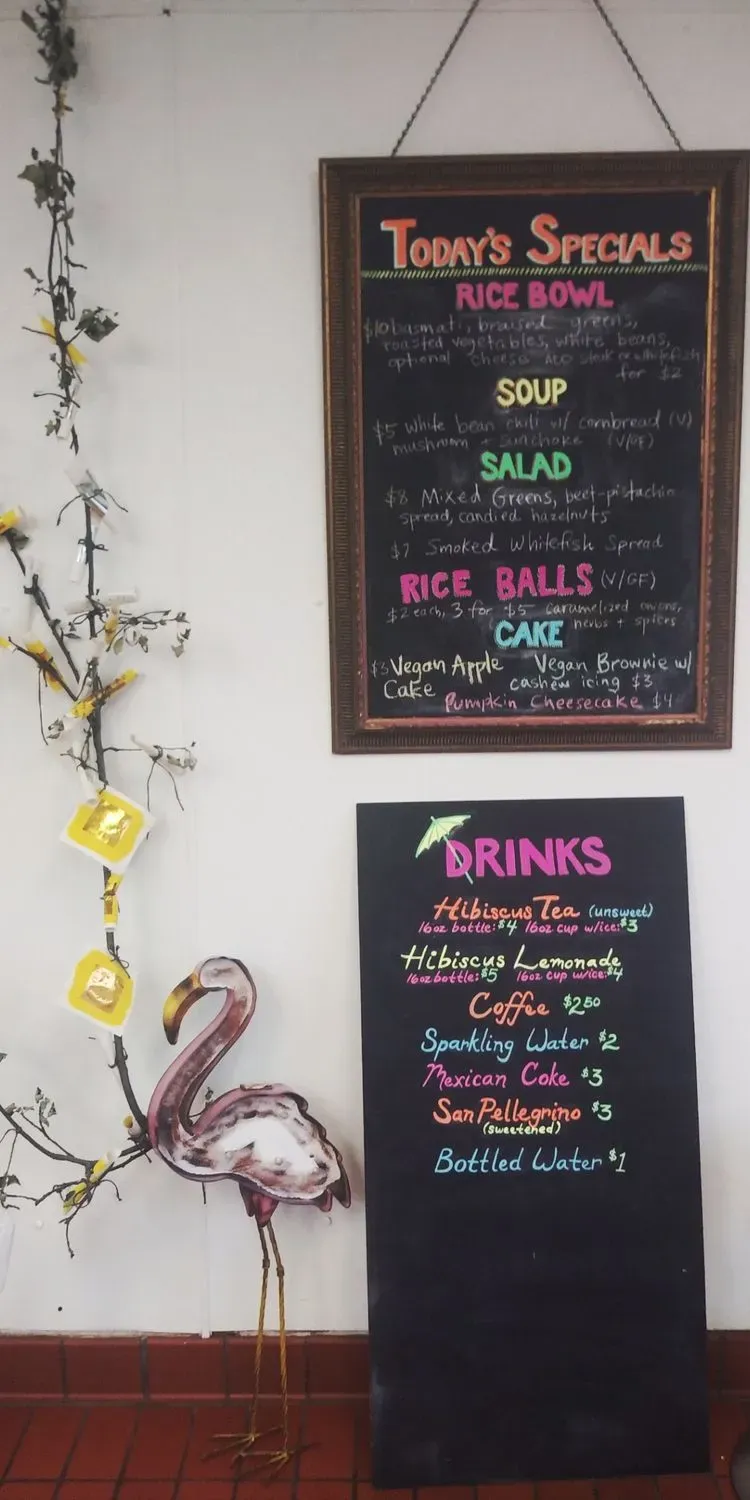 TODAY'S SPECIALS
RICE BOWL
$10 basmati, braised greens,
roasted vegetables, white beans,
optional cheese ADD steak or whitefish
for $2
SOUP
$5 White bean chili w/ cornbread (V)
mushroom + sunchoke (V/GF)
SALAD
$8 Mixed Greens, beet-pistachio
spread, candied hazelnuts
$7 Smoked Whitefish Spread
RICE BALLS (V/GF)
$2 each, 3 for $5 caramelized onions,
herbs + spices
CAKE
$3 Vegan Apple Cake
Vegan Brownie w/
cashew icing $3
Pumpkin Cheesecake $4
DRINKS
Hibiscus Tea (unsweet)
16oz bottle: $4 16oz cup w/ice: $3
Hibiscus Lemonade
16oz bottle: $5 16oz cup w/ice: $4
Coffee $2.50
Sparkling Water $2
Mexican Coke $3
San Pellegrino $3
(sweetened)
Bottled Water $1